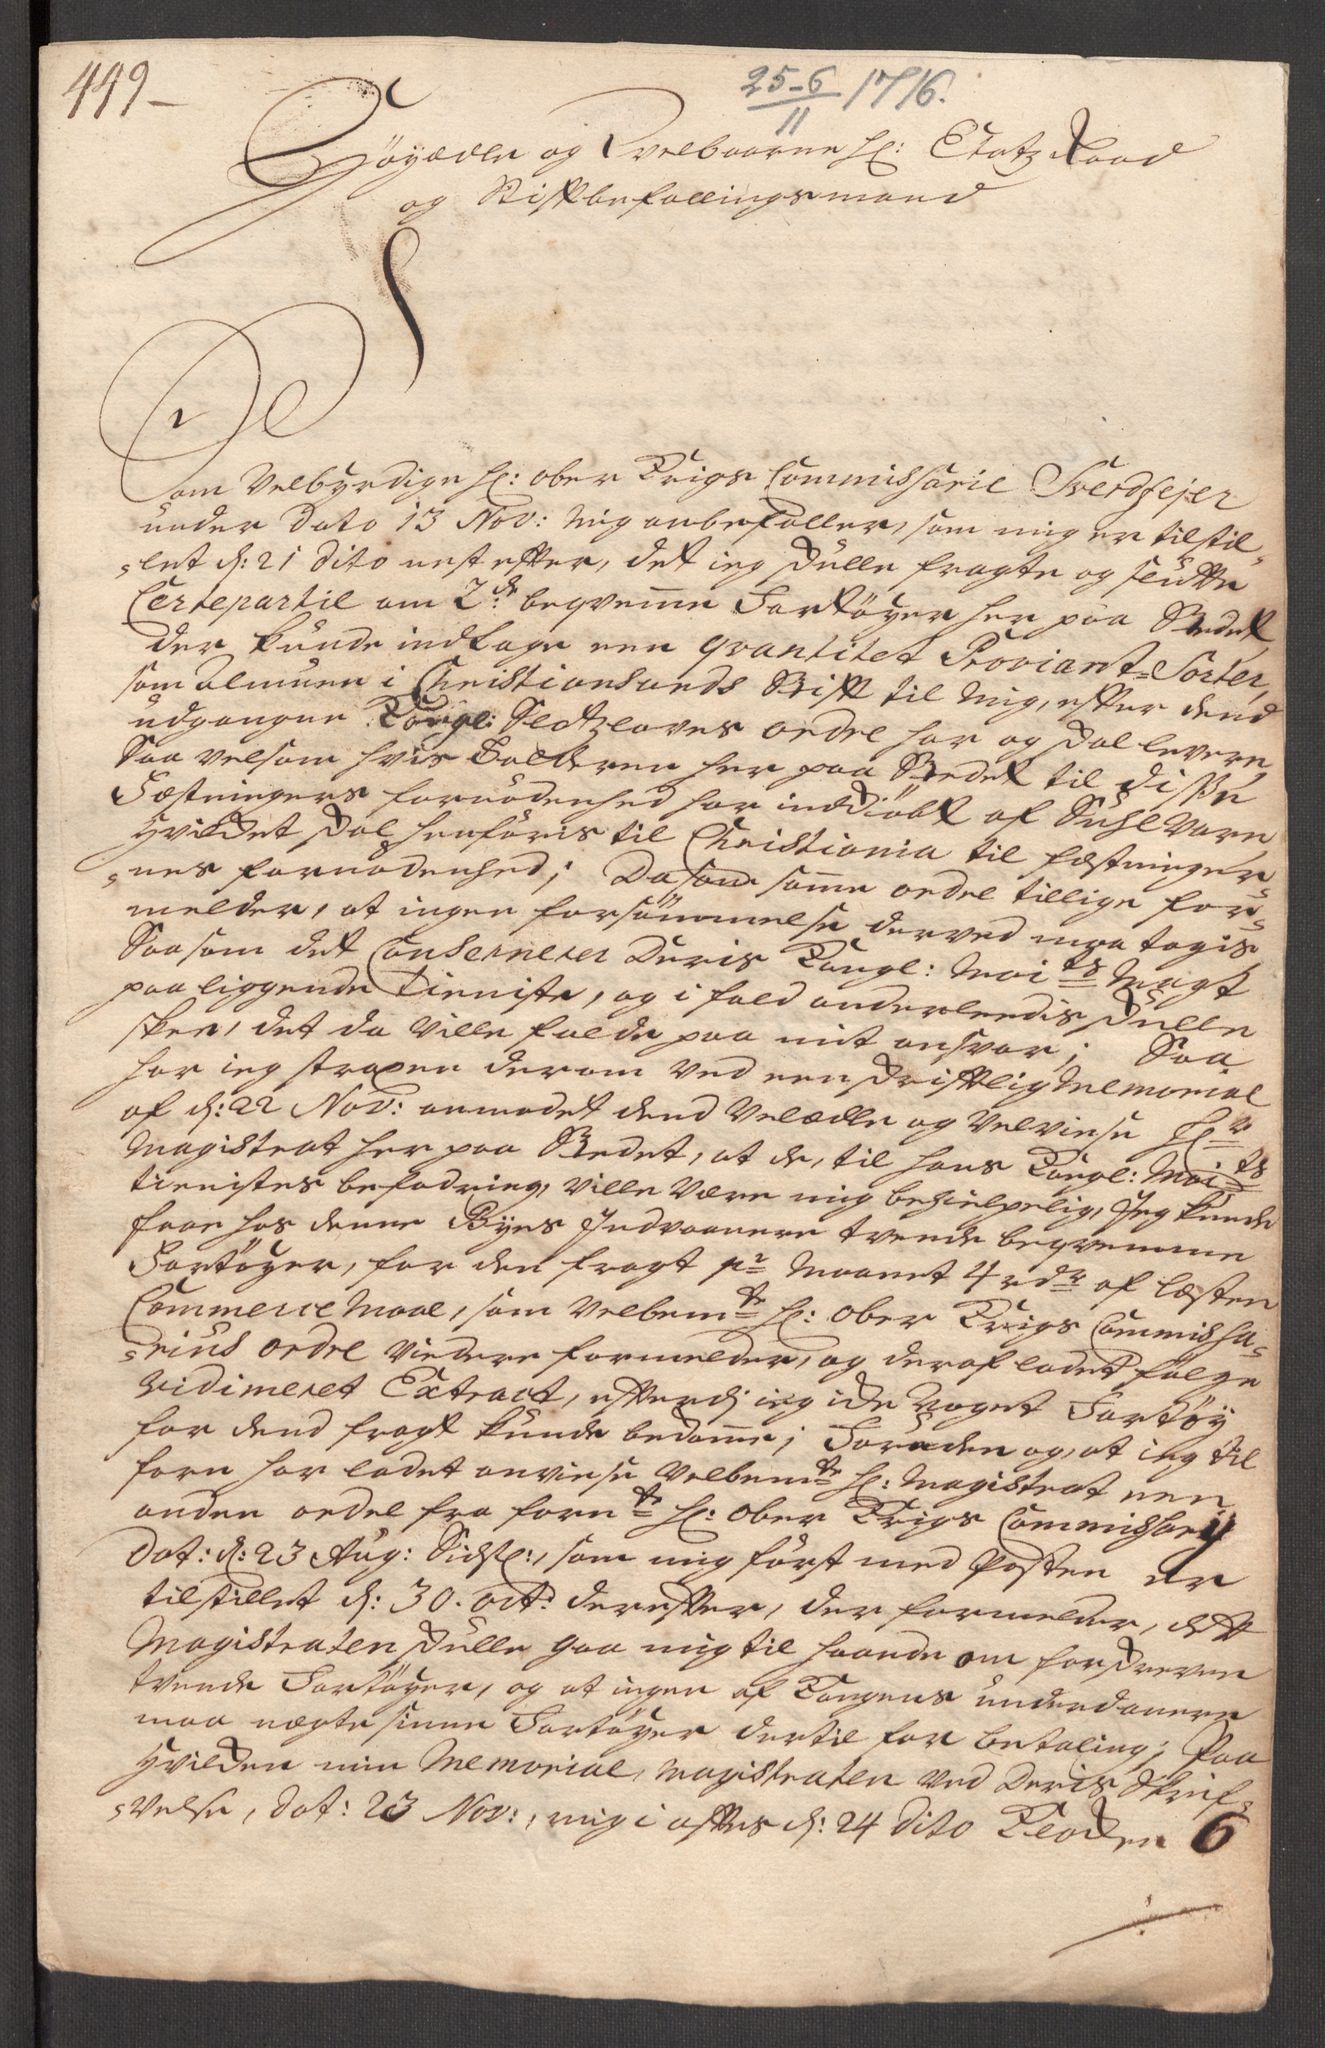 449
25-6/11 1716.
Höyædle og Velbaarne Hr: Etatz Raad
og Stiftbefallingsmand
Som Velbyrdige Hr: ober Krigs Commissarie Sverdfejer
under Dato 13 Nov: mig anbefaller, som mig er tilstil-
let d: 21 dito nest efter, det ieg skulle fragte og slutte
Certepartie om 2de beqvemme Fartöyer her paa Stedet,
der kunde indtage een qvantitet Proviant-Sorter,
som Almuen i Christiansands Stift til mig, efter dend
udgangne Kongl: Slotzlovens ordre har og skal levere,
Saa velsom hvis her paa Stedet til disse
Fæstningers fornödenhed har indkiöbt af Suhl Vare,
hvilket skal henföris til Christiania til fæstninger-
nes fornödenhed; Da som samme ordre tillige for-
melder, at ingen forsömmelse derved maa tagis
Saasom det Conserne​rer Deris Kongl: Maits Magt
paaliggende tieniste, og i fald anderleedis skulle
skee, det da ville falde paa mit ansvar; Saa
har ieg straxen derom ved een skriftlig Memorial
af d: 22 Nov: anmodet dend Velædle og Velviise Hr
Magistrat her paa Stedet, at de, til hans Kongl: Maits
tienistes befodring, ville være mig behielpelig, Jeg kunde
faae hos denne Byes Indvaanere tvende beqvemme
Fartöyer, for den fragt pr Maanet 4 rdr af læsten
Commerce Maal, som Velbemte Hr: Ober Krigs Commissa-
rius ordre viedere formelder, og deraf ladet fölge
vidimeret Extract, efterdj ieg icke noget Fartöy
for dend fragt kunde bekomme; Foruden og, at ieg til
forn har ladet anviise Velbemte Hr: Magistrat een
anden ordre fra fornte Hr: Ober Krigs Commissari
Dat: d: 23 Aug: Sidstl:, som mig först med Posten er
tilstillet d: 30. oct: derefter, der formelder, at
Magistraten skulle gaa mig til haande om forskreven
tvende Fartöyer, og at ingen af Kongens underdanere
maa nægte sinne Fartöyer dertil for betaling; Paa
hvilken min Memorial, Magistraten ved Deris Skrif-
velse, dat: 23 Nov:, mig i aftes d: 24 dito Klocken 6